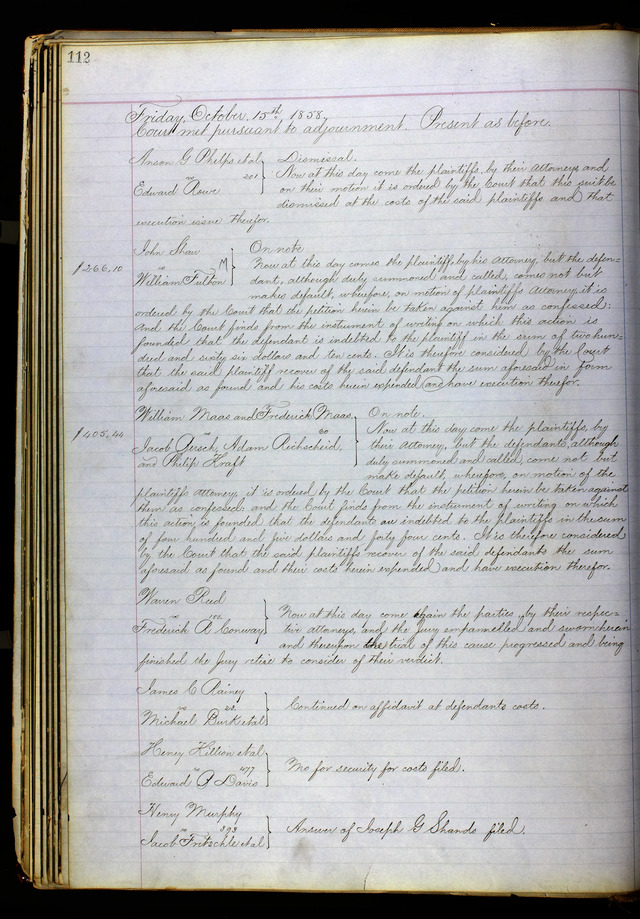 112
Friday, October 15th, 1858,
Court met pursuant to adjournment. Present as before.
Anson G Phelps et al
vs 201
Edward Rowe
Dismissal.
Now at this day come the plaintiffs, by their Attorneys, and
on their motion it is ordered by the Court that this suit be
dismissed at the costs of the said plaintiffs and that
execution issue therefor.
$266.10
John Shaw
vs
William Fulton
On note
Now at this day comes the plaintiff, by his Attorney, but the defen-
dant, although duly summoned and called, comes not but
makes default, wherefore, on motion of plaintiffs Attorney, it is
ordered by the Court that the petition herein be taken against him as confessed:
and the Court finds from the instrument of writing on which this action is
founded that the defendant is indebted to the plaintiff in the sum of two hun-
dred and sixty six dollars and ten cents. It is therefore considered by the Court
that the said plaintiff recover of the said defendant the sum aforesaid in form
aforesaid as found and his costs herein expended and have execution therefor.
$405.44
William Maas and Frederick Maas
vs 60
Jacob Gersch, Adam Reichscheid,
and Philip Kraft
On note.
Now at this day come the plaintiffs, by
their Attorney, but the defendants, although
duly summoned and called, come not but
make default, wherefore, on motion of the
plaintiffs Attorney, it is ordered by the Court that the petition herein be taken against
them as confessed: and the Court finds from the instrument of writing on which
this action is founded that the defendants are indebted to the plaintiffs in the sum
of four hundred and five dollars and forty four cents. It is therefore considered
by the Court that the said plaintiffs recover of the said defendants the sum
aforesaid as found and their costs herein expended and have execution therefor.
Waren Reed
vs
Frederick R Conway
Now at this day come again the parties, by their respec-
tive attorneys, and the Jury empannelled and sworn herein
and thereupon the trial of this cause progressed and being
finished the Jury retire to consider of their verdict.
James C Rainey
vs
Michael Burk et al
Continued on affidavit at defendants costs.
Henry Hillson et al
vs 477
Edward P Davis
Mo for security for costs filed.
Henry Murphy
vs 393
Jacob Fritschle et al
Answer of Joseph G Shands filed.